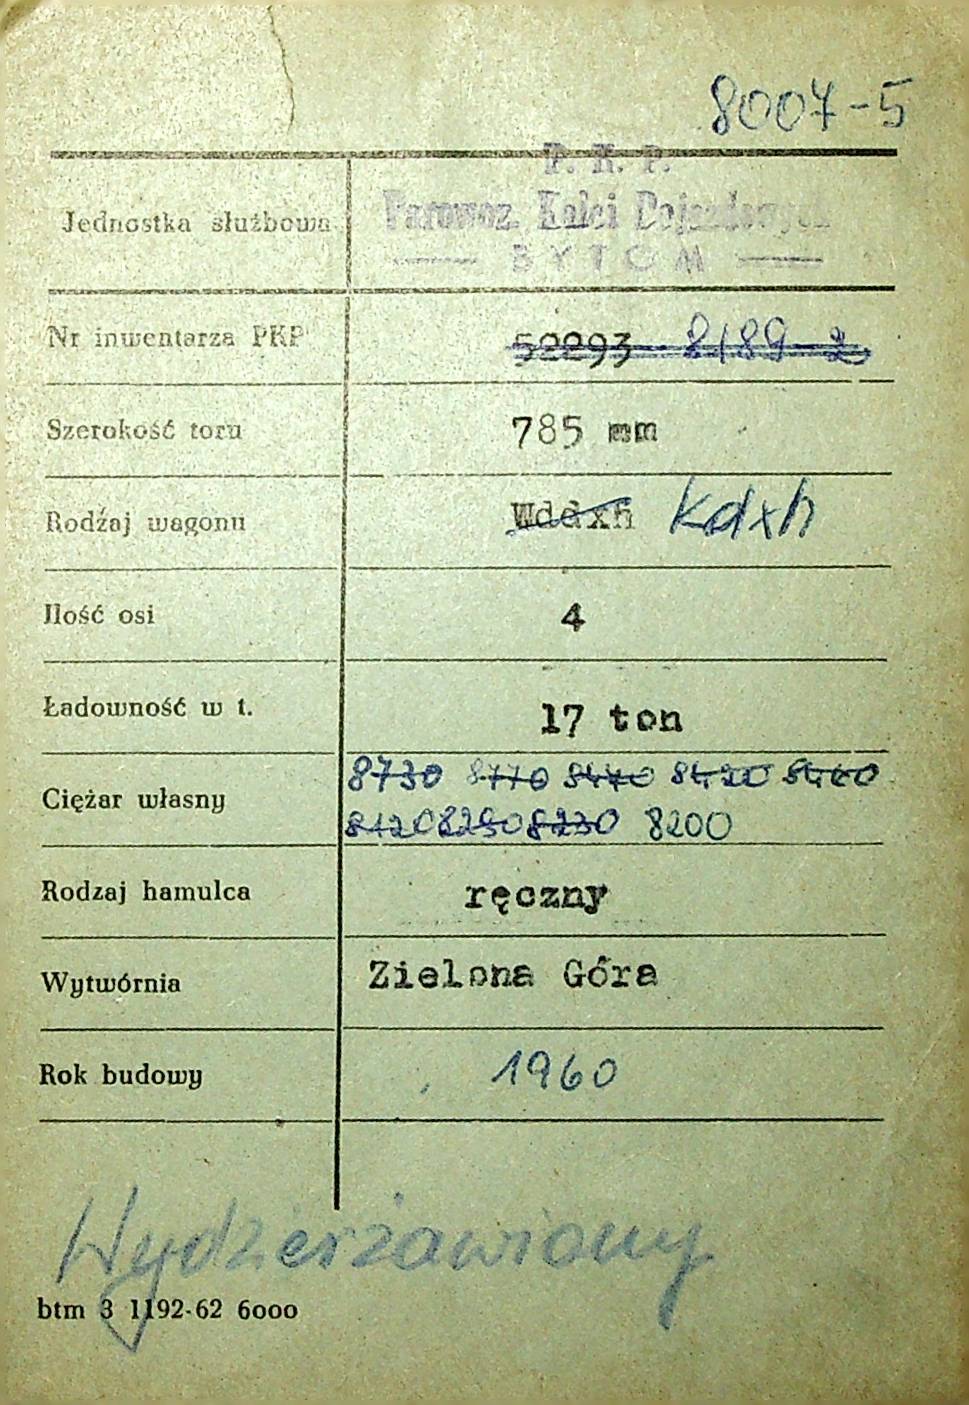 8007-5
P. K. P.
Jednostka służbowa Parowoz. Kolei Dojazdowych
BYTOM
Nr inwentarza PKP 52293 8189-2
Szerokość toru 785 mm
Rodzaj wagonu Wddxh Kdxh
Ilość osi 4
Ładowność w t. 17 ton
8730 8770 8440 8420
Ciężar własny
8120 8250 8230 8200
Rodzaj hamulca ręczny
Wytwórnia Zielona Góra
Rok budowy 1960
Wydzierżawiony
btm 3 1192-62 6000